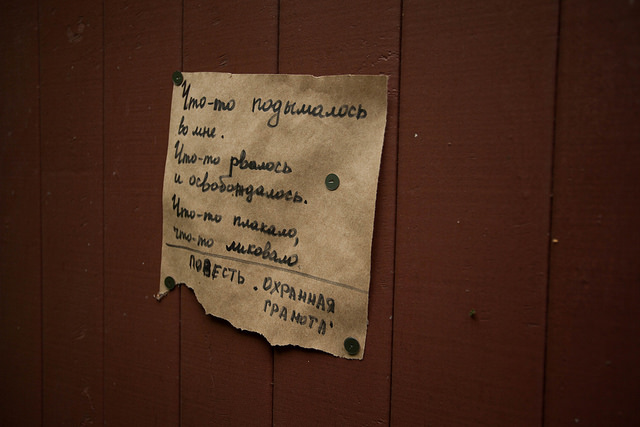 Что-то подымалось
во мне.
Что-то рвалось
и освобождалось.
Что-то плакало,
что-то ликовало
ПОВЕСТЬ "ОХРАННАЯ
ГРАМОТА"